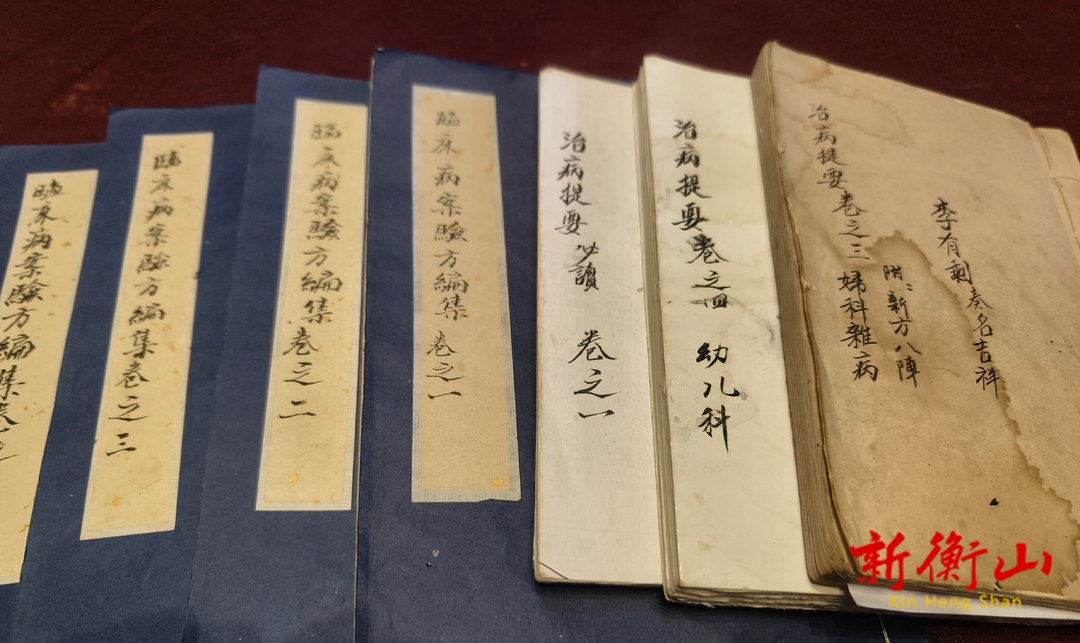 臨床病案驗方編集卷之
臨床病案驗方編集卷之三
臨床病案驗方編集卷之二
臨床病案驗方編集 卷之一
治病提要 必讀 卷之一
治病提要卷之四 幼儿科
治病提要卷之三 婦科雜病
附:新方八陣
李有剩奏名吉祥
新衡山
Xin Heng Shan